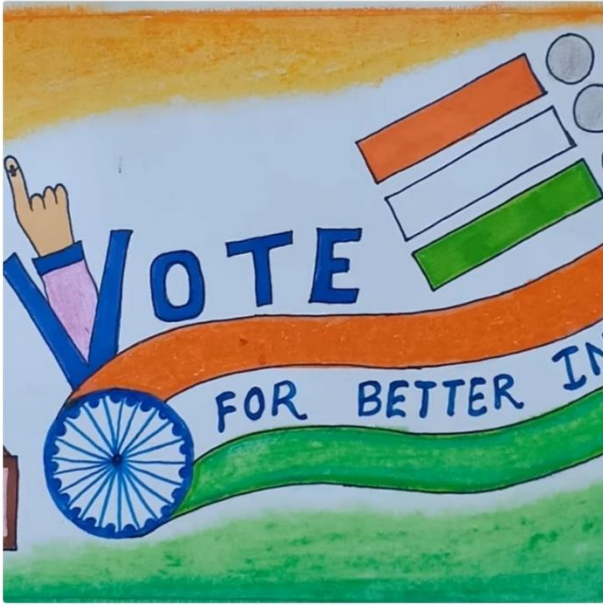 VOTE
FOR BETTER IN